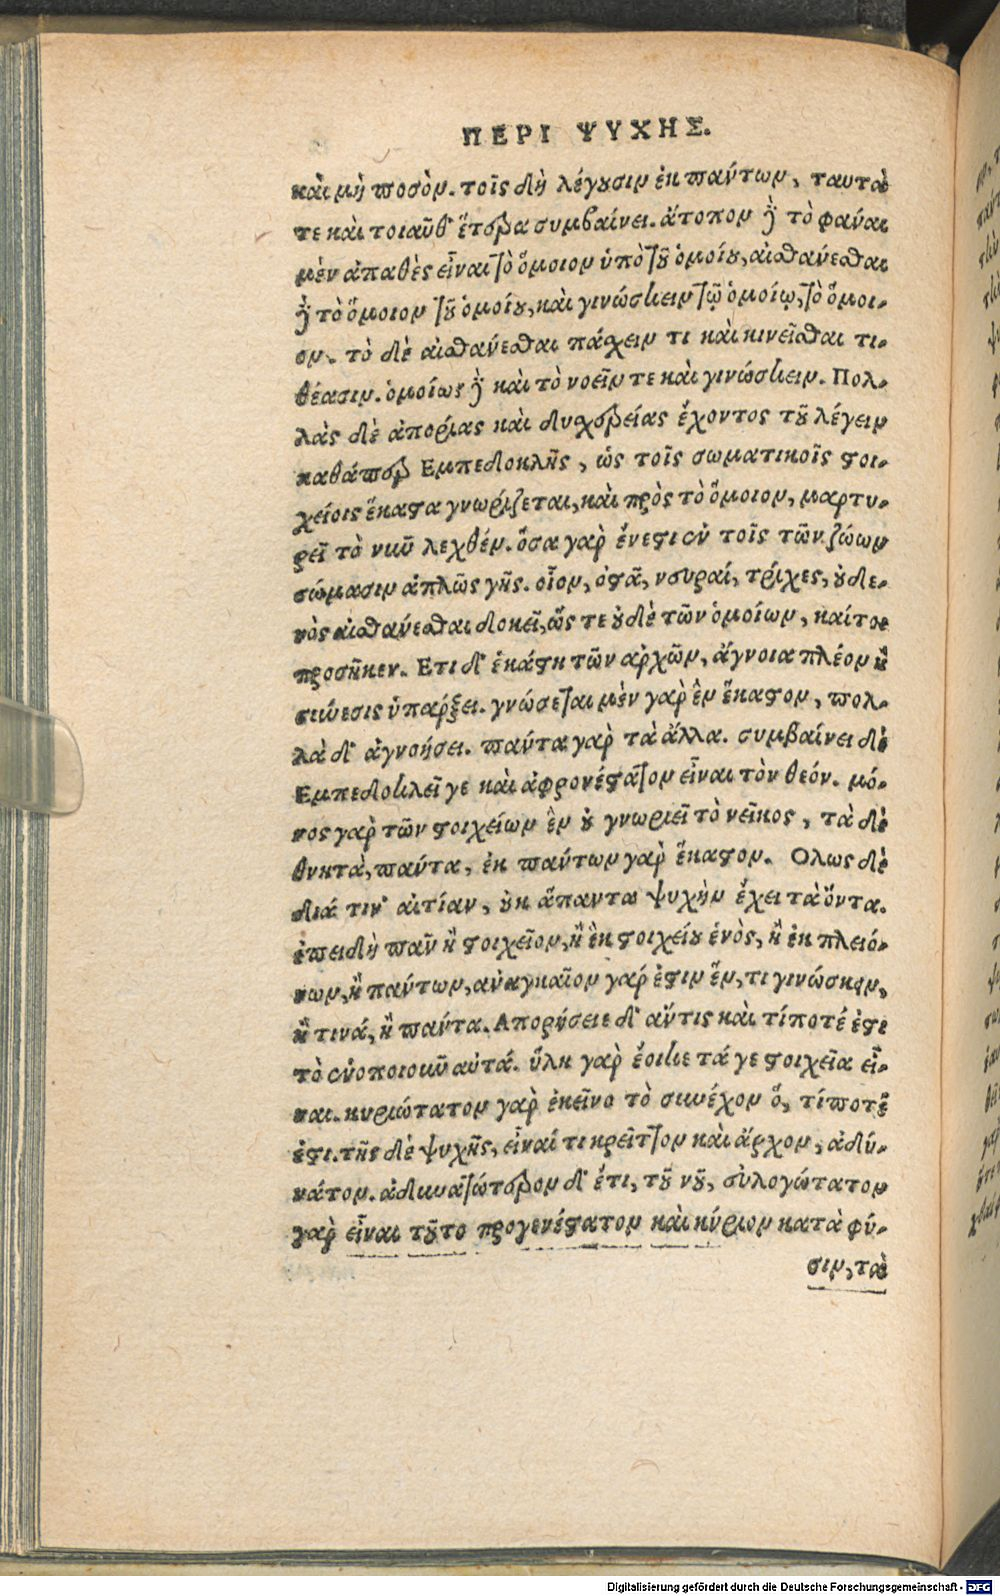 ΠΕΡΙ ΨΥΧΗΣ.
καὶ μὴ ποσὸν. τοῖς δὴ λέγουσιν ἐκ πάντων, ταυτά
τε καὶ τοιαῦθ' ἕτερα συμβαίνει. ἄτοπον δὲ τὸ φάναι
μὲν ἀπαθὲς εἶναι τὸ ὅμοιον ὑπὸ τοῦ ὁμοίου, αἰσθάνεσθαι
δὲ τὸ ὅμοιον τοῦ ὁμοίου, καὶ γινώσκειν τῷ ὁμοίῳ, τὸ ὅμοι-
ον. τὸ δὲ αἰσθάνεσθαι πάσχειν τι καὶ κινεῖσθαι τι-
θέασιν. ὁμοίως δὲ καὶ τὸ νοεῖν τε καὶ γινώσκειν. Πολ-
λὰς δὲ ἀπορίας καὶ δυσχερείας ἔχοντος τοῦ λέγειν
καθάπερ Εμπεδοκλῆς, ὡς τοῖς σωματικοῖς στοι-
χείοις ἕκαστα γνωρίζεται, καὶ πρὸς τὸ ὅμοιον, μαρτυ-
ρεῖ τὸ νῦν λεχθέν. ὅσα γὰρ ἔνεστιν ἐν τοῖς τῶν ζώων
σώμασιν ἁπλῶς γῆς. οἷον, ὀστᾶ, νευραί, τρίχες, οὐδε-
νὸς αἰσθάνεσθαι δοκεῖ, ὥς τε οὐδὲ τῶν ὁμοίων, καίτοι
προσῆκεν. Ετι δ' ἑκάστη τῶν ἀρχῶν, ἄγνοια πλέον ἢ
σύνεσις ὑπάρξει. γνώσεται μὲν γὰρ ἓν ἕκαστον, πολ-
λὰ δ' ἀγνοήσει. πάντα γὰρ τὰ ἄλλα. συμβαίνει δὲ
Εμπεδοκλεῖ γε καὶ ἀφρονέστατον εἶναι τὸν θεόν. μό-
νος γὰρ τῶν στοιχείων ἓν οὐ γνωριεῖ τὸ νεῖκος, τὰ δὲ
θνητὰ, πάντα, ἐκ πάντων γὰρ ἕκαστον. Ολως δὲ
διά τιν' αἰτίαν, οὐκ ἅπαντα ψυχὴν ἔχει τὰ ὄντα.
ἐπειδὴ πᾶν ἢ στοιχεῖον, ἢ ἐκ στοιχείου ἑνὸς, ἢ ἐκ πλειό-
νων, ἢ πάντων, ἀναγκαῖον γάρ ἐστιν ἕν, τι γινώσκειν,
ἢ τινά, ἢ πάντα. Απορήσειε δ' ἄν τις καὶ τί ποτέ ἐστι
τὸ ἑνοποιοῦν αὐτά. ὕλη γὰρ ἔοικε τά γε στοιχεῖα εἶ-
ναι. κυριώτατον γὰρ ἐκεῖνο τὸ συνέχον ὅ, τί ποτέ
ἐστι. τῆς δὲ ψυχῆς, εἶναί τι κρεῖττον καὶ ἄρχον, ἀδύ-
νάτον. ἀδυνατώτερον δ' ἔτι, τοῦ νοῦ, εὐλογώτατον
γὰρ εἶναι τοῦτο προγενέστατον καὶ κύριον κατὰ φύ-
σιν, τὰ
Digitalisierung gefördert durch die Deutsche Forschungsgemeinschaft - DFG